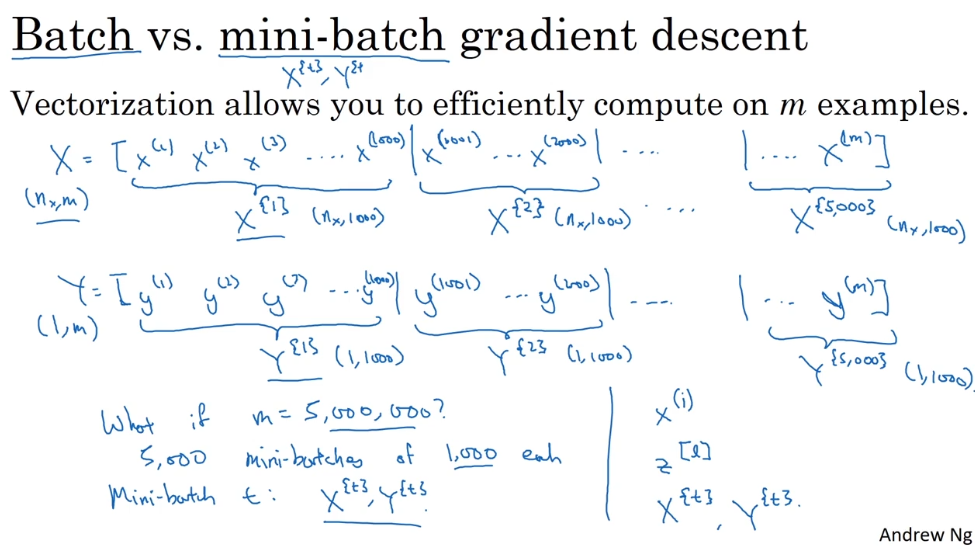 Batch vs. mini-batch gradient descent
X^{t}, Y^{t
Vectorization allows you to efficiently compute on m examples.
X = [x^(1) x^(2) x^(3) .... x^(1000) | x^(1001) ... x^(2000) | .... | .... x^(m)]
(n_x, m)
X^{1} (n_x, 1000) X^{2} (n_x, 1000) .... X^{5,000} (n_x, 1000)
Y = [y^(1) y^(2) y^(3) ... y^(1000) | y^(1001) ... y^(2000) | .... | ... y^(m)]
(1, m)
Y^{1} (1, 1000) Y^{2} (1, 1000) Y^{5,000} (1, 1000)
What if m = 5,000,000?
5,000 mini-batches of 1,000 each
Mini-batch t: X^{t}, Y^{t}.
x^(i)
z^[l]
X^{t}, Y^{t}.
Andrew Ng